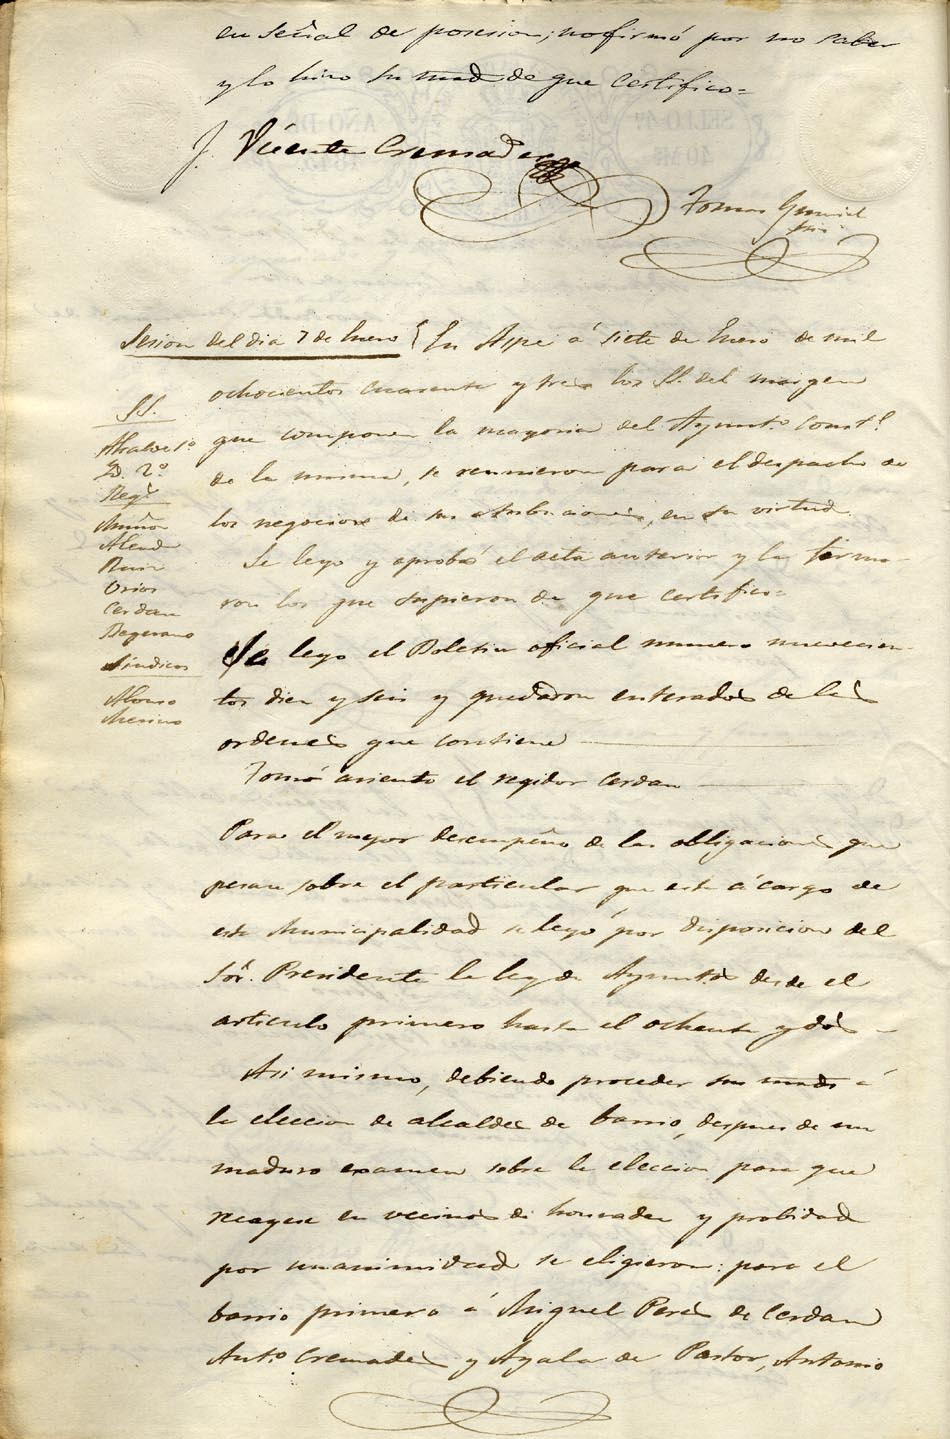 en señal de posesion; no firmó por no saber
y lo hizo su mrd. de que certifico=
J. Vicente Cremades
Tomas
Sesion del dia 7 de Enero En Aspe á siete de Enero de mil
ochocientos cuarenta y tres los SS. del margen
que componen la mayoria del Ayunto. Constl.
de la misma, se reunieron para el despacho de
los negocios de sus atribuciones, en su virtud
Se leyo y aprobó el acta anterior y la firma-
ron los que supieron de que certifico=
SS.
Alcalde 1º
D. 2º
Regs.
Muñoz
Alenda
Ruiz
Orios
Cerdan
Begerano
Sindicos
Alonso
Merino
Se leyo el Boletin oficial numero novecien-
tos diez y seis y quedaron enterados de las
ordenes que contiene
Tomó asiento el regidor Cerdan
Para el mejor desempeño de las obligaciones que
pesan sobre el particular que está á cargo de
esta Municipalidad se leyó por disposicion del
Sor. Presidente la ley de Ayuntos. desde el
articulo primero hasta el ochenta y dos
Asi mismo, debiendo proceder sus mrds. á
la eleccion de alcaldes de barrio, despues de un
maduro examen sobre la eleccion para que
recayese en vecinos de honradez y probidad
por unanimidad se eligieron: para el
barrio primero á Miguel Peres de Cerdan
Anto. Cremades y Ayala de Pastor, Antonio